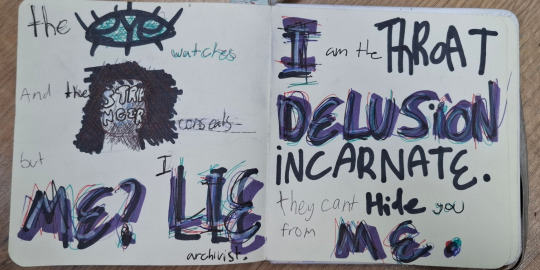 the EYE
watches
And the STRANGER
conceals
but
ME? I LIE
archivist.
I am the THROAT
DELUSiON
iNCARNATE.
they cant Hide you
from ME.